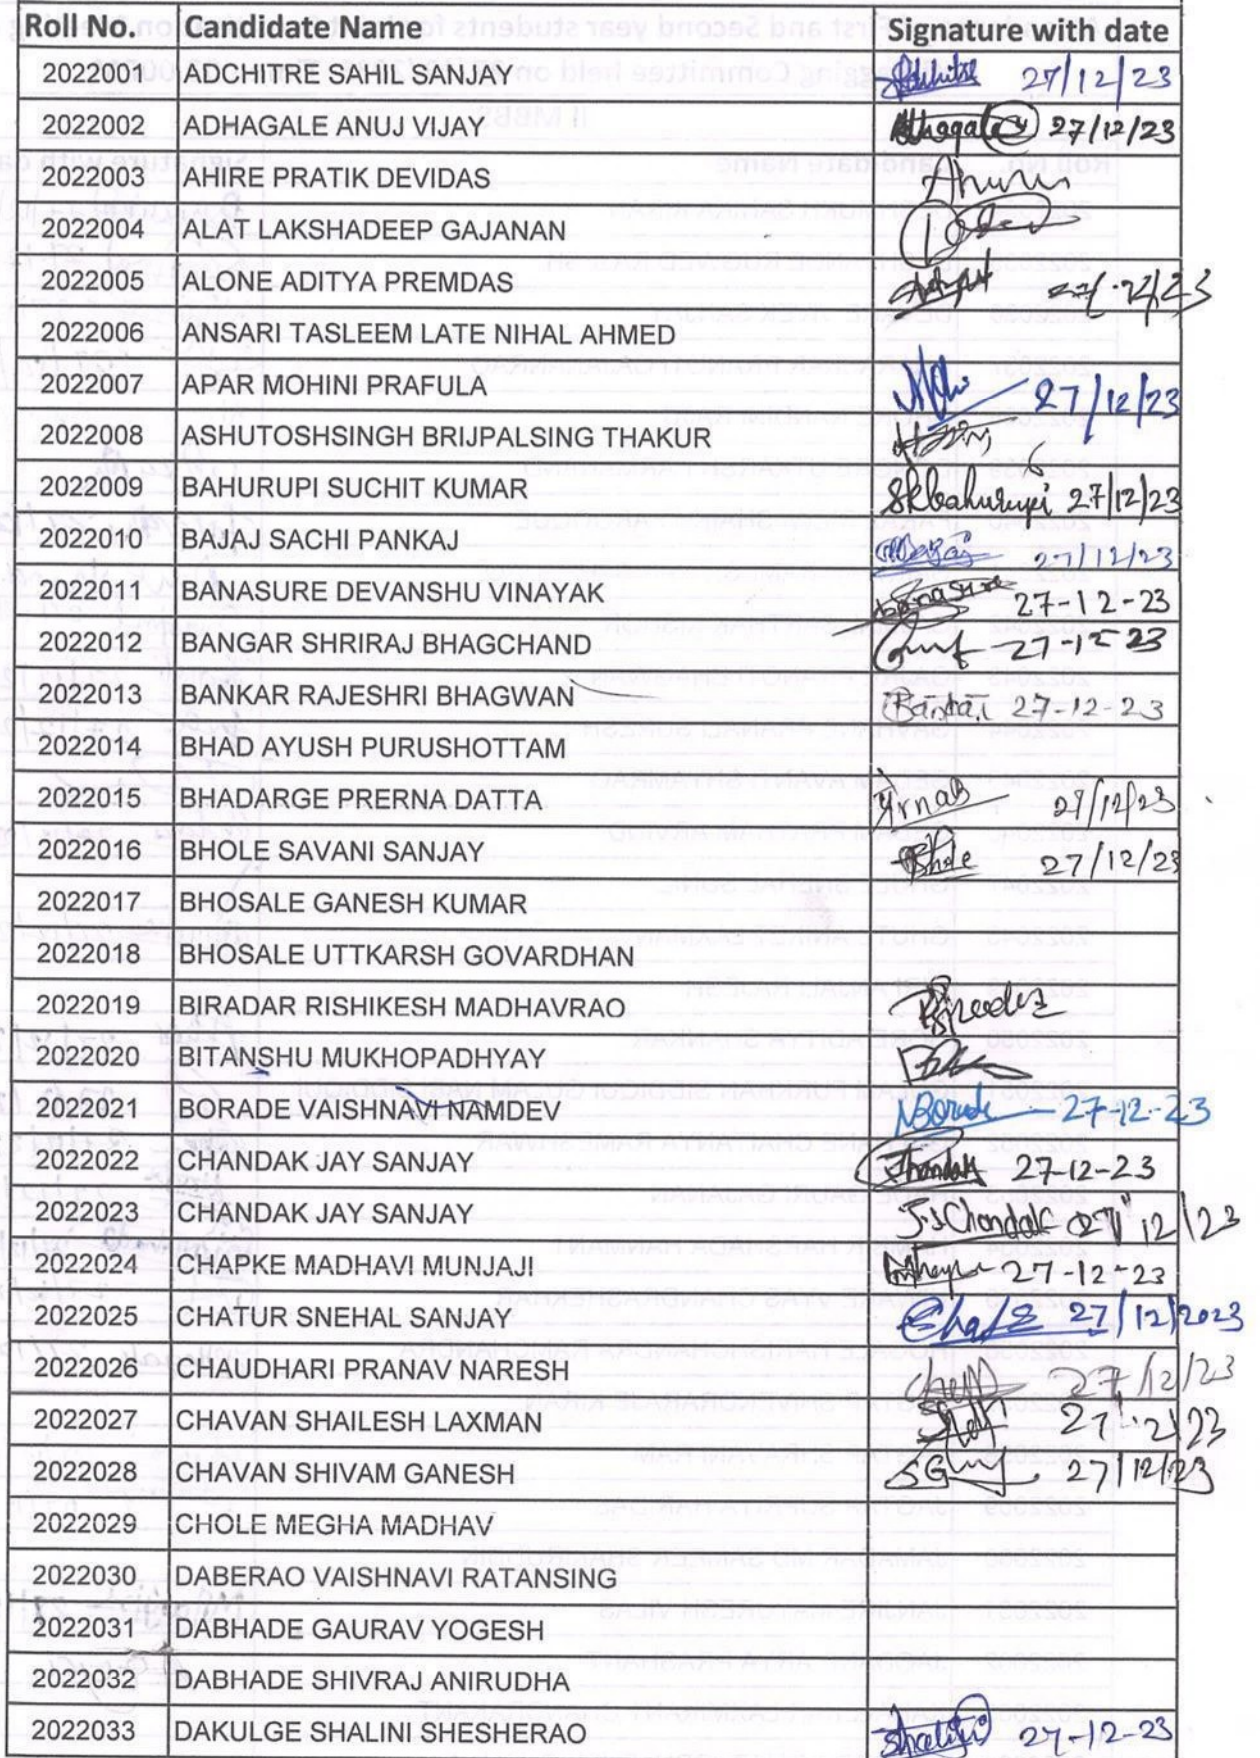 Roll No. Candidate Name Signature with date
2022001 ADCHITRE SAHIL SANJAY 27/12/23
2022002 ADHAGALE ANUJ VIJAY Adhagale 27/12/23
2022003 AHIRE PRATIK DEVIDAS
2022004 ALAT LAKSHADEEP GAJANAN
2022005 ALONE ADITYA PREMDAS
2022006 ANSARI TASLEEM LATE NIHAL AHMED
2022007 APAR MOHINI PRAFULA 27/12/23
2022008 ASHUTOSHSINGH BRIJPALSING THAKUR
2022009 BAHURUPI SUCHIT KUMAR SKbahurupi 27/12/23
2022010 BAJAJ SACHI PANKAJ 27/12/23
2022011 BANASURE DEVANSHU VINAYAK 27-12-23
2022012 BANGAR SHRIRAJ BHAGCHAND 27-12-23
2022013 BANKAR RAJESHRI BHAGWAN 27-12-23
2022014 BHAD AYUSH PURUSHOTTAM
2022015 BHADARGE PRERNA DATTA 27/12/23
2022016 BHOLE SAVANI SANJAY Bhole 27/12/23
2022017 BHOSALE GANESH KUMAR
2022018 BHOSALE UTTKARSH GOVARDHAN
2022019 BIRADAR RISHIKESH MADHAVRAO
2022020 BITANSHU MUKHOPADHYAY
2022021 BORADE VAISHNAVI NAMDEV VBorade 27-12-23
2022022 CHANDAK JAY SANJAY Chandak 27-12-23
2022023 CHANDAK JAY SANJAY J.S.Chandak 27/12/23
2022024 CHAPKE MADHAVI MUNJAJI 27-12-23
2022025 CHATUR SNEHAL SANJAY 27/12/2023
2022026 CHAUDHARI PRANAV NARESH 27/12/23
2022027 CHAVAN SHAILESH LAXMAN 27/12/23
2022028 CHAVAN SHIVAM GANESH 27/12/23
2022029 CHOLE MEGHA MADHAV
2022030 DABERAO VAISHNAVI RATANSING
2022031 DABHADE GAURAV YOGESH
2022032 DABHADE SHIVRAJ ANIRUDHA
2022033 DAKULGE SHALINI SHESHERAO Shalini 27-12-23